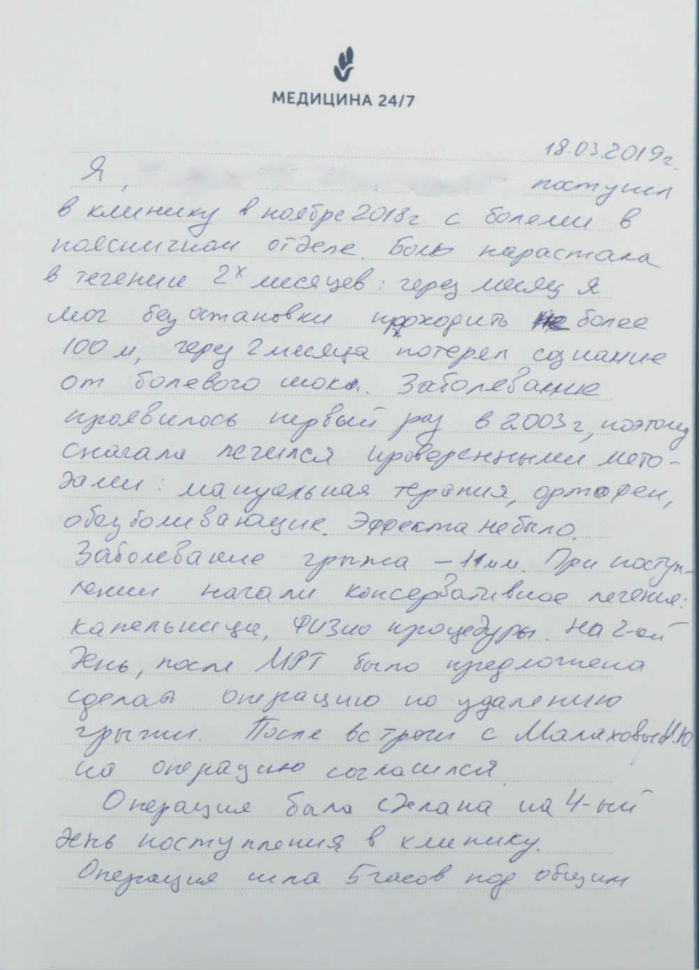 МЕДИЦИНА 24/7
18.03.2019г.
Я, поступил
в клинику в ноябре 2018г с болями в
поясничном отделе. Боль нарастала
в течении 2х месяцев: через месяц я
мог без остановки проходить не более
100 м, через 2 месяца потерял сознание
от болевого шока. Заболевание
проявилось первый раз в 2003г, поэтому
сначала лечился проверенными мето-
дами: мануальная терапия, ортофен,
обезболивающие. Эффекта не было.
Заболевание грыжа – 11мм. При поступ-
лении начали консервативное лечение:
капельница, физио процедуры. На 2-ой
день, после МРТ было предложена
сделать операцию по удалению
грыжи. После встречи с Малаховым Н.Ю.
на операцию согласился.
Операция была сделана на 4-ый
день поступления в клинику.
Операция шла 5 часов под общим